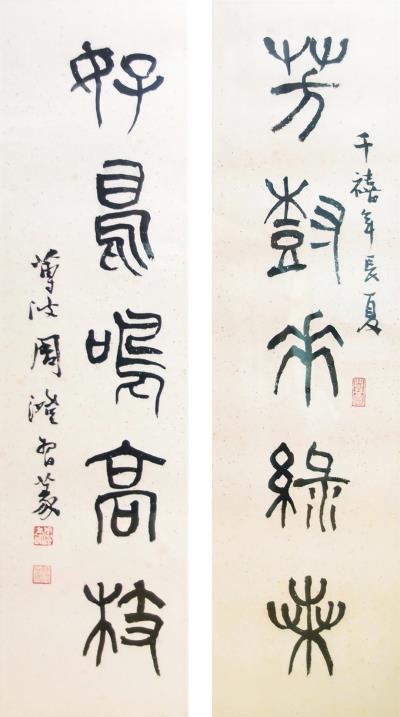 芳樹垂綠葉
千禧年長夏
好鳥鳴高枝
蓴波周澄習篆